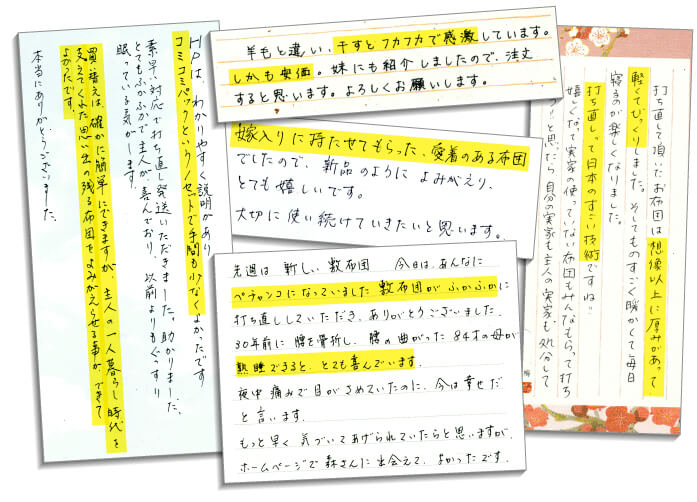 HPは、わかりやすく説明があり
コミコミパックという/セットで手間も少なくよかったです
素早い対応で打ち直し発送いただきました。助かりました。
とてもふかふかで主人が、喜んでおり、以前よりもぐっすり
眠っている気がします。
買い替えは、確かに簡単にできますが、主人の一人暮らし時代を
支えてくれた思い出の残る布団をよみがえらせる事が、できて
よかったです。
本当にありがとうございました。
羊毛と違い、干すとフカフカで感激しています。
しかも安価。妹にも紹介しましたので、注文
すると思います。よろしくお願いします。
嫁入りに持たせてもらった、愛着のある布団
でしたので、新品のように よみがえり、
とても嬉しいです。
大切に使い続けていきたいと思います。
先週は 新しい敷布団 今日は、あんなに
ペチャンコになっていました敷布団が ふかふかに
打ち直ししていただき、ありがとうございました。
30年前に腰を骨折し、腰の曲がった84才の母が
熟睡できると、とても喜んでいます。
夜中痛みで目がさめていたのに、今は幸せだ
と言います。
もっと早く気づいてあげられていたらと思いますが、
ホームページで森さんに出会えて、よかったです。
打ち直して頂いたお布団は想像以上に厚みがあって
軽くてびっくりしました。そしてものすごく暖かくて毎日
寝るのが楽しくなりました。
打ち直しって日本のすごい技術ですね!!
嬉しくなって実家で使っていない布団もみんなもらって打ち
う!!と思ったら自分の実家も主人の実家も処分して